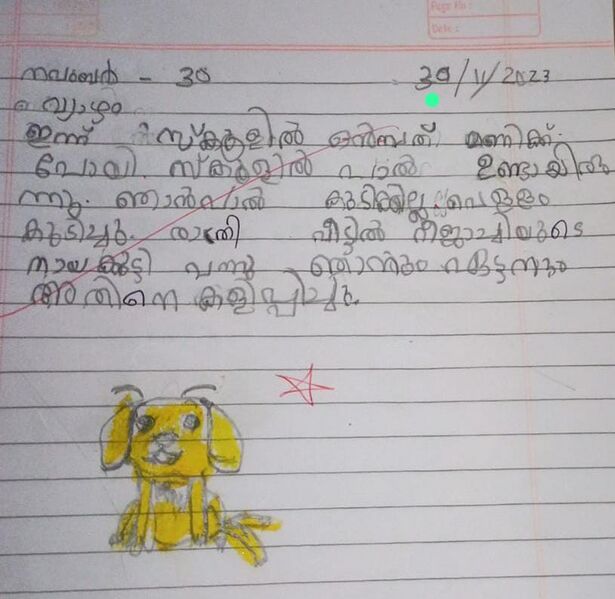 Page No:
Date:
നവംബർ - 30 30/11/2023
വ്യാഴം
ഇന്ന് സ്കൂളിൽ ഒൻബത് മണിക്ക്
പോയി. സ്കൂളിൽ പാൽ ഉണ്ടായിരു
ന്നു. ഞാൻ പാൽ കുടിക്കില്ല വെള്ളം
കുടിച്ചു. രാത്രി വീട്ടിൽ നീജാച്ചിയുടെ
നായക്കുട്ടി വന്നു ഞാനും കുട്ടനും
അതിനെ കളിപ്പിച്ചു.